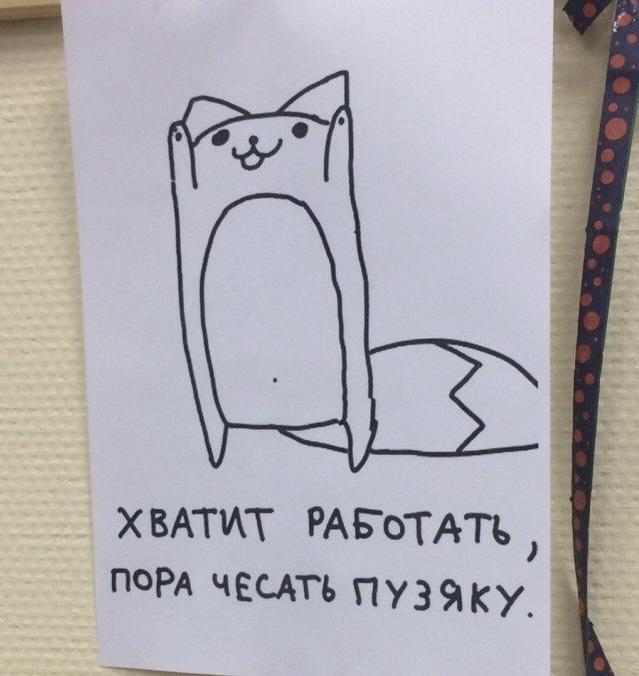 ХВАТИТ РАБОТАТЬ,
ПОРА ЧЕСАТЬ ПУЗЯКУ.